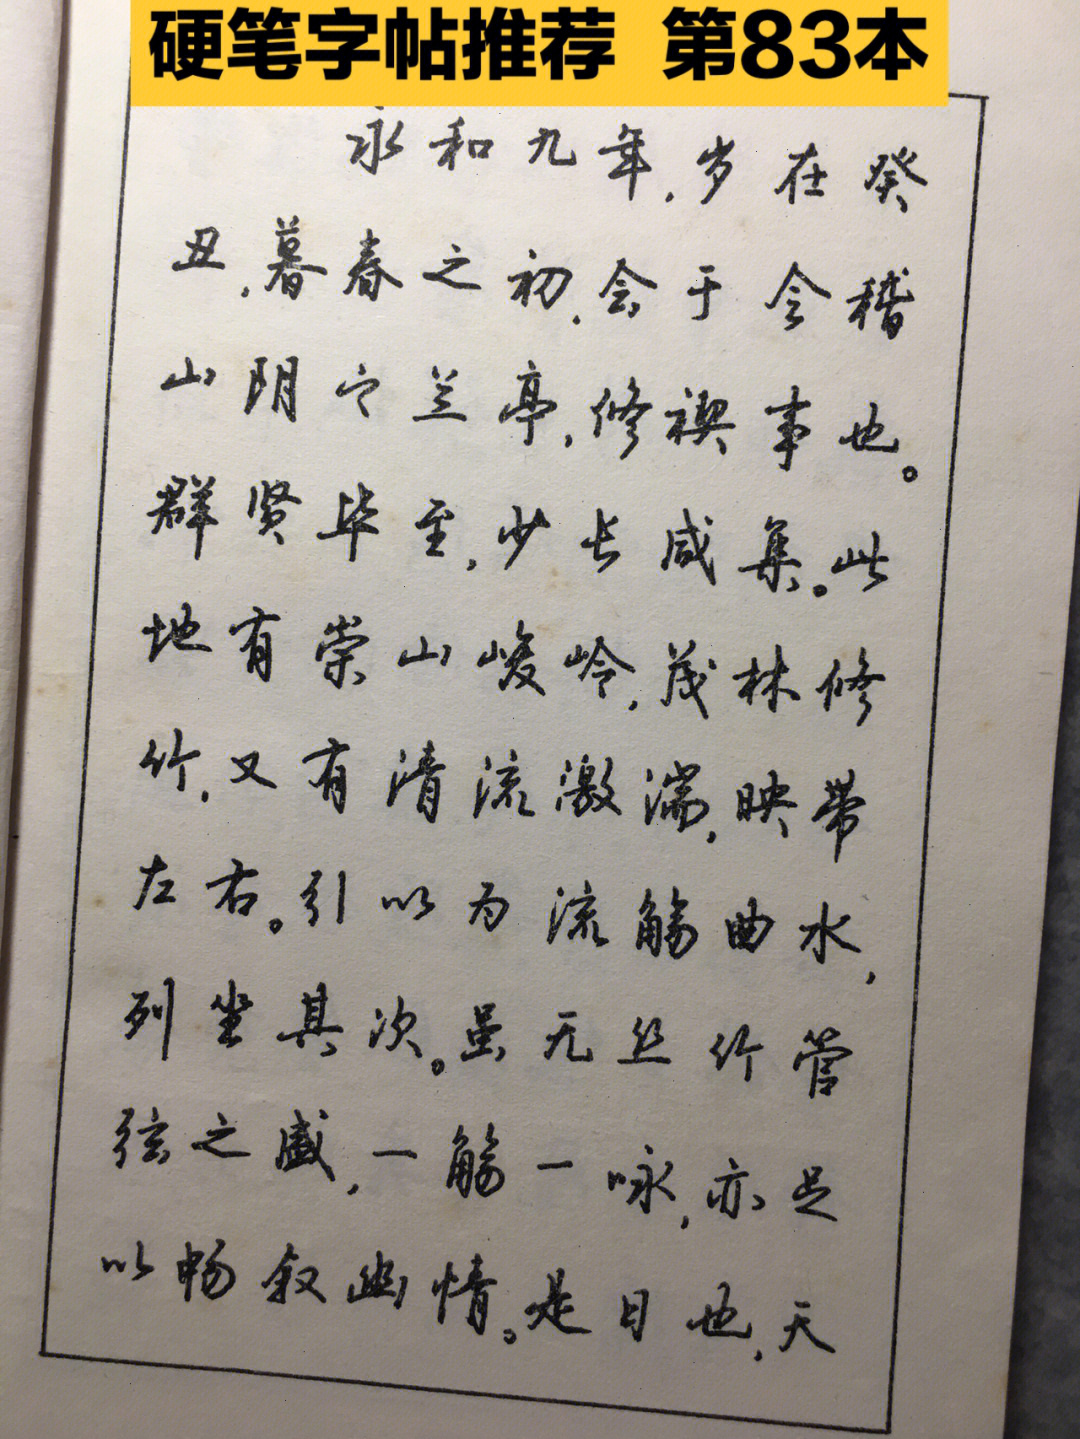 硬笔字帖推荐 第83本
永和九年,岁在癸
丑,暮春之初,会于会稽
山阴之兰亭,修禊事也。
群贤毕至,少长咸集。此
地有崇山峻岭,茂林修
竹,又有清流激湍,映带
左右。引以为流觞曲水,
列坐其次。虽无丝竹管
弦之盛,一觞一咏,亦足
以畅叙幽情。是日也,天